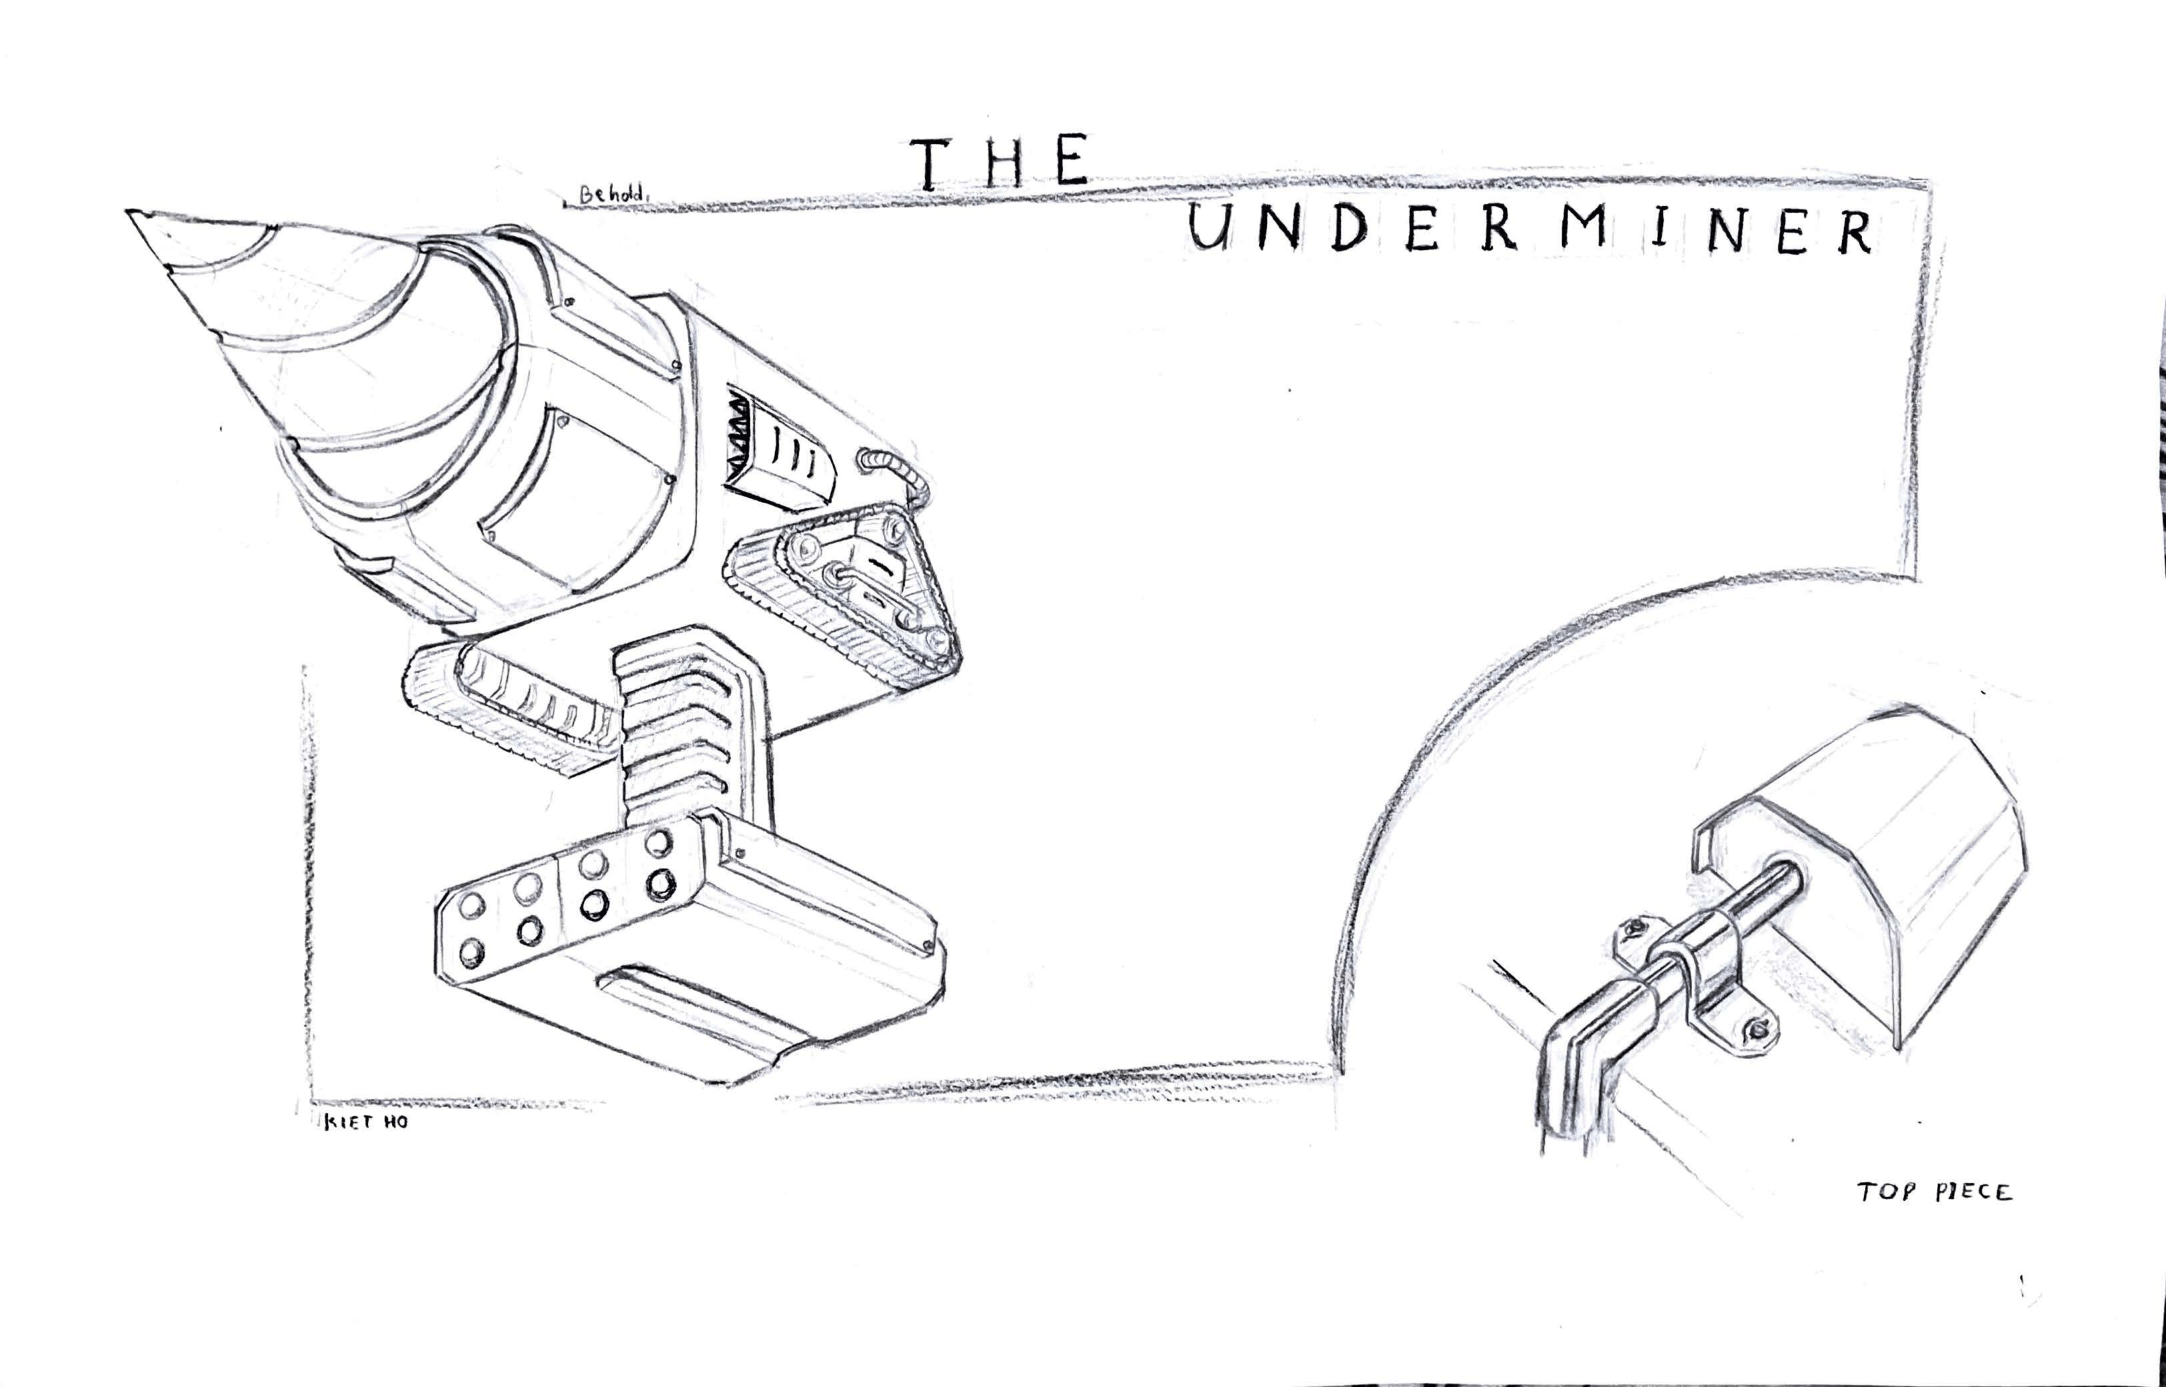 Behold,
THE
UNDERMINER
KIET HO
TOP PIECE